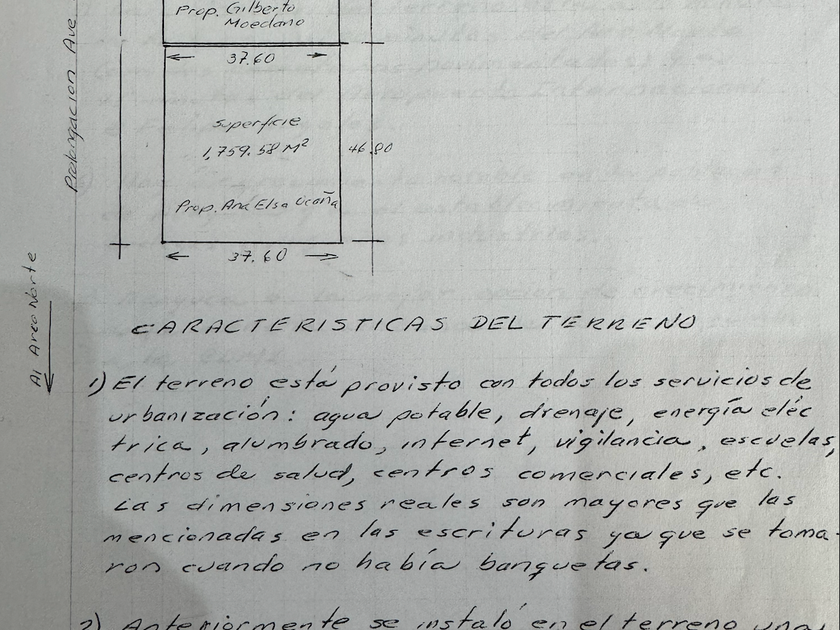 Prop. Gilberto
Moedano
37.60
Prolongacion Ave
superficie
1,759.58 M²
46.80
Prop. Ana Elsa Ucaña
37.60
Al Arco Norte
CARACTERISTICAS DEL TERRENO
1) El terreno está provisto con todos los servicios de
urbanización: agua potable, drenaje, energía eléc
trica, alumbrado, internet, vigilancia, escuelas,
centros de salud, centros comerciales, etc.
Las dimensiones reales son mayores que las
mencionadas en las escrituras ya que se toma-
ron cuando no había banquetas.
2) Anteriormente se instaló en el terreno una